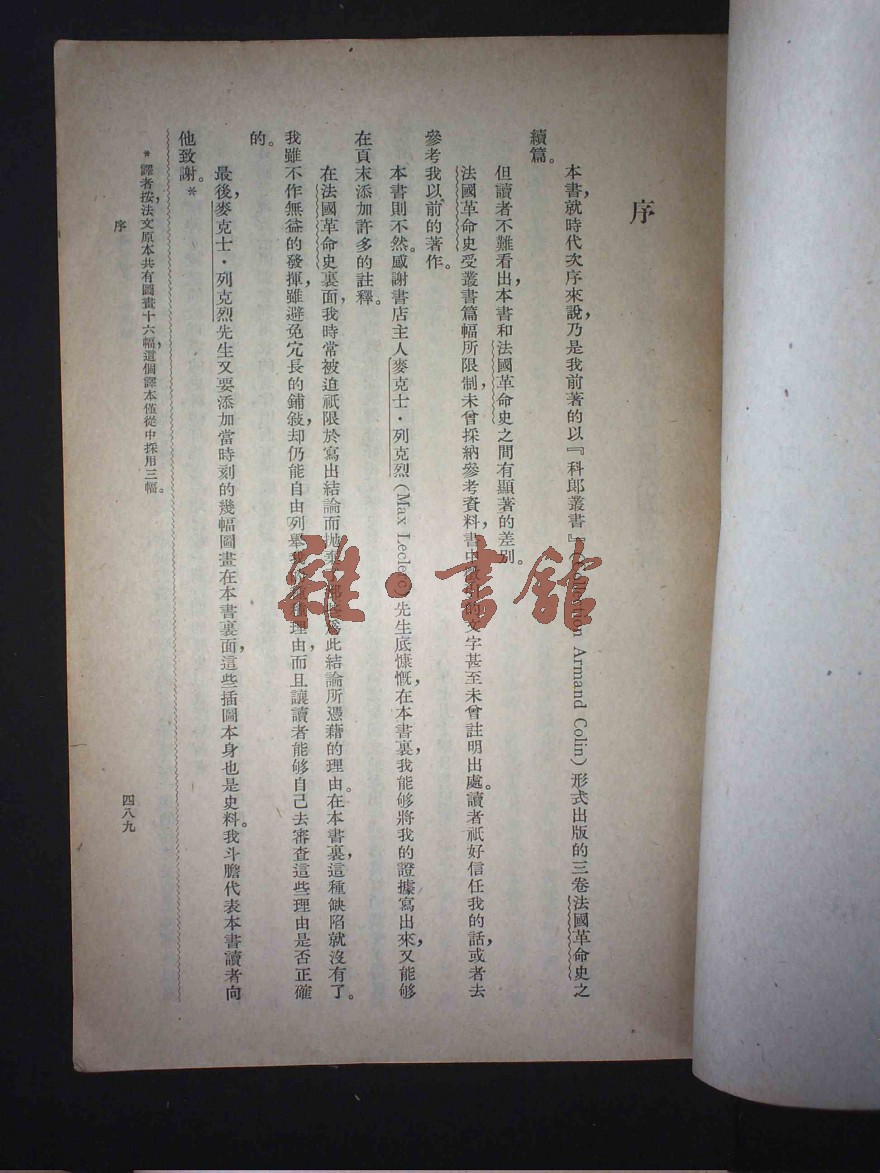 序
本書，就時代次序來說，乃是我前著的以『科郎叢書』(Collection Armand Colin)形式出版的三卷法國革命史之
續篇。
但讀者不難看出，本書和法國革命史之間有顯著的差別。
法國革命史受叢書篇幅所限制，未曾採納參考資料，書中的文字甚至未曾註明出處。讀者祇好信任我的話，或者去
參考我以前的著作。
本書則不然。感謝書店主人麥克士·列克烈(Max Leclerc)先生底慷慨，在本書裏，我能够將我的證據寫出來，又能够
在頁末添加許多的註釋。
在法國革命史裏面，我時常被迫祇限於寫出結論而拋棄了此結論所憑藉的理由。在本書裏，這種缺陷就沒有了。
我雖不作無益的發揮，雖避免冗長的鋪敍，却仍能自由列舉理由，而且讓讀者能够自己去審查這些理由是否正確
的。
最後，麥克士·列克烈先生又要添加當時刻的幾幅圖畫在本書裏面，這些插圖本身也是史料。我斗膽代表本書讀者向
他致謝。*
*譯者按，法文原本共有圖畫十六幅，這個譯本僅從中採用三幅。
序
四八九
雜·書館